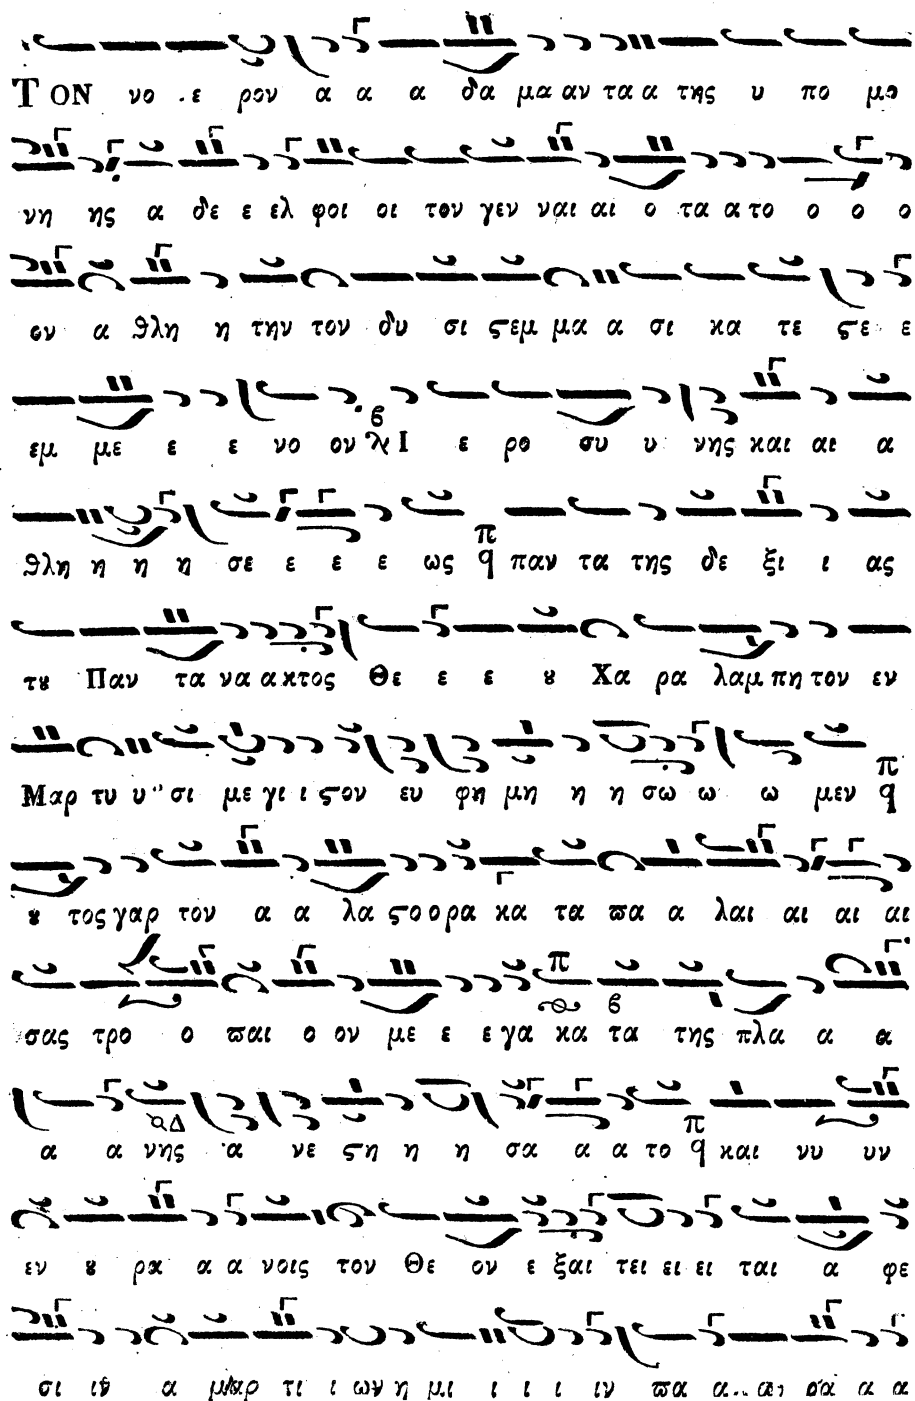 ΤΟΝ νο ε ρον α α α δα μα αν τα α της υ πο μο
νη ης α δε ε ελ φοι οι τον γεν ναι αι ο τα α το ο ο ο
ον α θλη η την τον δυ σι ϛεμ μα α σι κα τε ϛε ε
εμ με ε ε νο ον Ι ε ρο συ υ νης και αι α
θλη η η η σε ε ε ε ως π q παν τα της δε ξι ι ας
τȣ Παν τα να α κτος Θε ε ε ȣ Χα ρα λαμ πη τον εν
Μαρ τυ υ σι με γι ι ϛον ευ φη μη η η σω ω ω μεν π q
ȣ τος γαρ τον α α λα ϛο ο ρα κα τα ϖα α λαι αι αι αι
σας τρο ο ϖαι ο ον με ε ε γα κα τα της πλα α α
α α νης α νε ϛη η η σα α α το π q και νυ υν
εν ȣ ρα α α νοις τον Θε ον ε ξαι τει ει ει ται α φε
σι ιν α μαρ τι ι ων η μι ι ι ι ιν ϖα α α α α